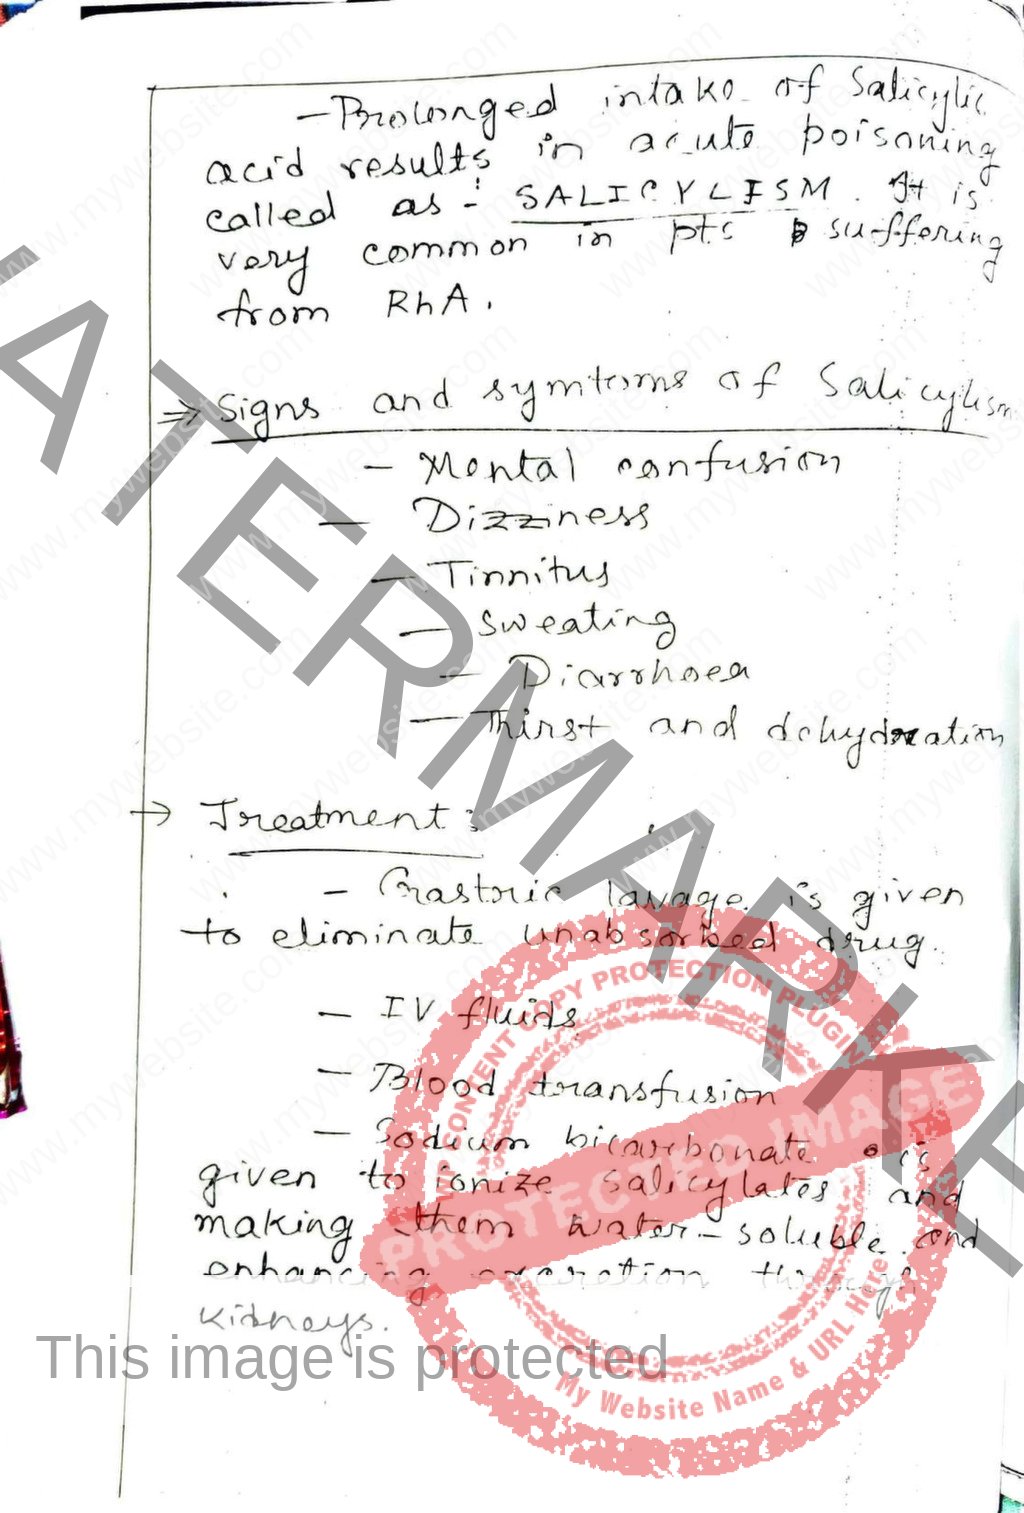 - Prolonged intake of Salicylic
acid results in acute poisoning
called as :- SALICYLISM. It is
very common in pts suffering
from RhA.
⇒ Signs and symtoms of Salicylism
- Mental confusion
- Dizziness
- Tinnitus
- Sweating
- Diarrhoea
- Thirst and dehydration
→ Treatment :
- Gastric lavage is given
to eliminate unabsorbed drug.
- IV fluids
- Blood transfusion
- Sodium bicarbonate is
given to ionize salicylates and
making them water-soluble and
enhancing excretion through
kidneys.
This image is protected
WATERMARKED
WP CONTENT COPY PROTECTION PLUGIN
PROTECTED IMAGE
My Website Name & URL Here
www.mywebsite.com